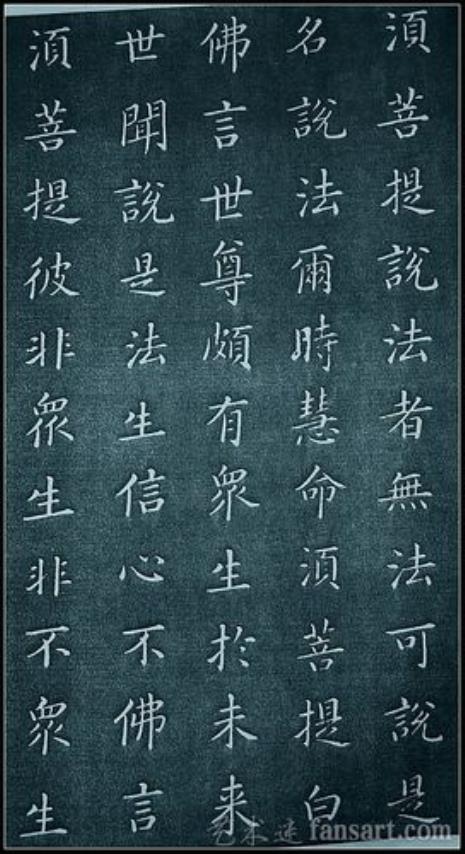 須菩提說法者無法可說是
名說法爾時慧命須菩提白
佛言世尊頗有眾生於未来
世聞說是法生信心不佛言
須菩提彼非眾生非不眾生
艺术迷 fansart.com